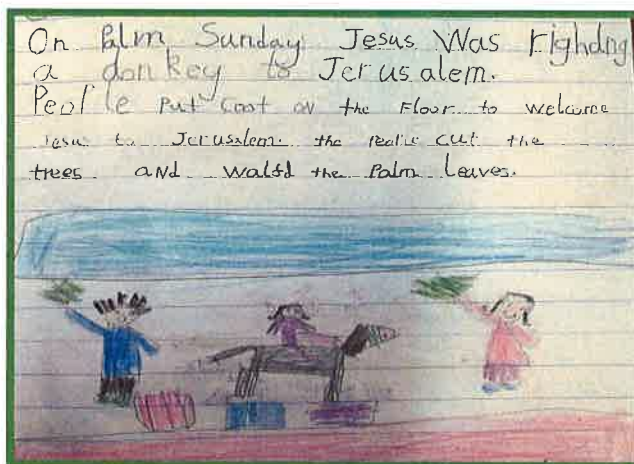 On Palm Sunday Jesus Was righdng
a donkey to Jerusalem.
Peolle Put Coat on the Floor to welcome
Jesus to Jerusalem. the Peolle cut the
trees and walfd the Palm leaves.